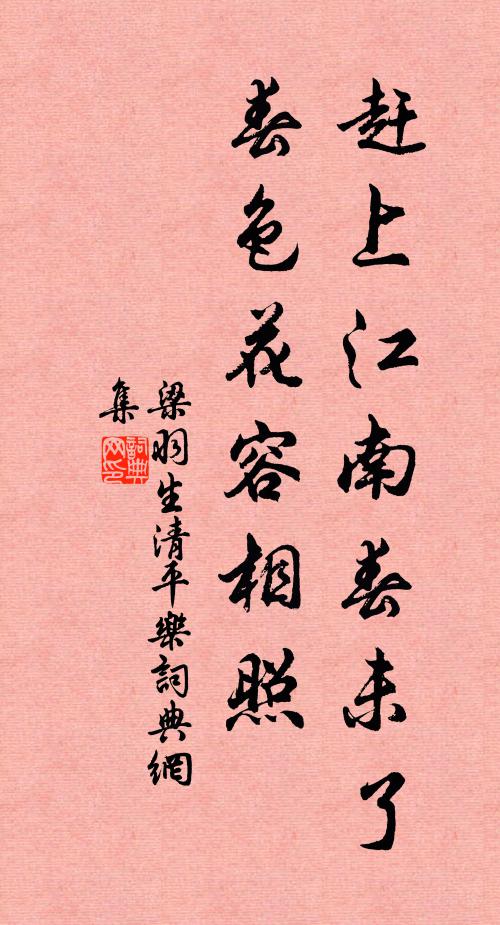 赶上江南春未了
春色花容相照
梁羽生清平樂詞典網
集
詞典
网印